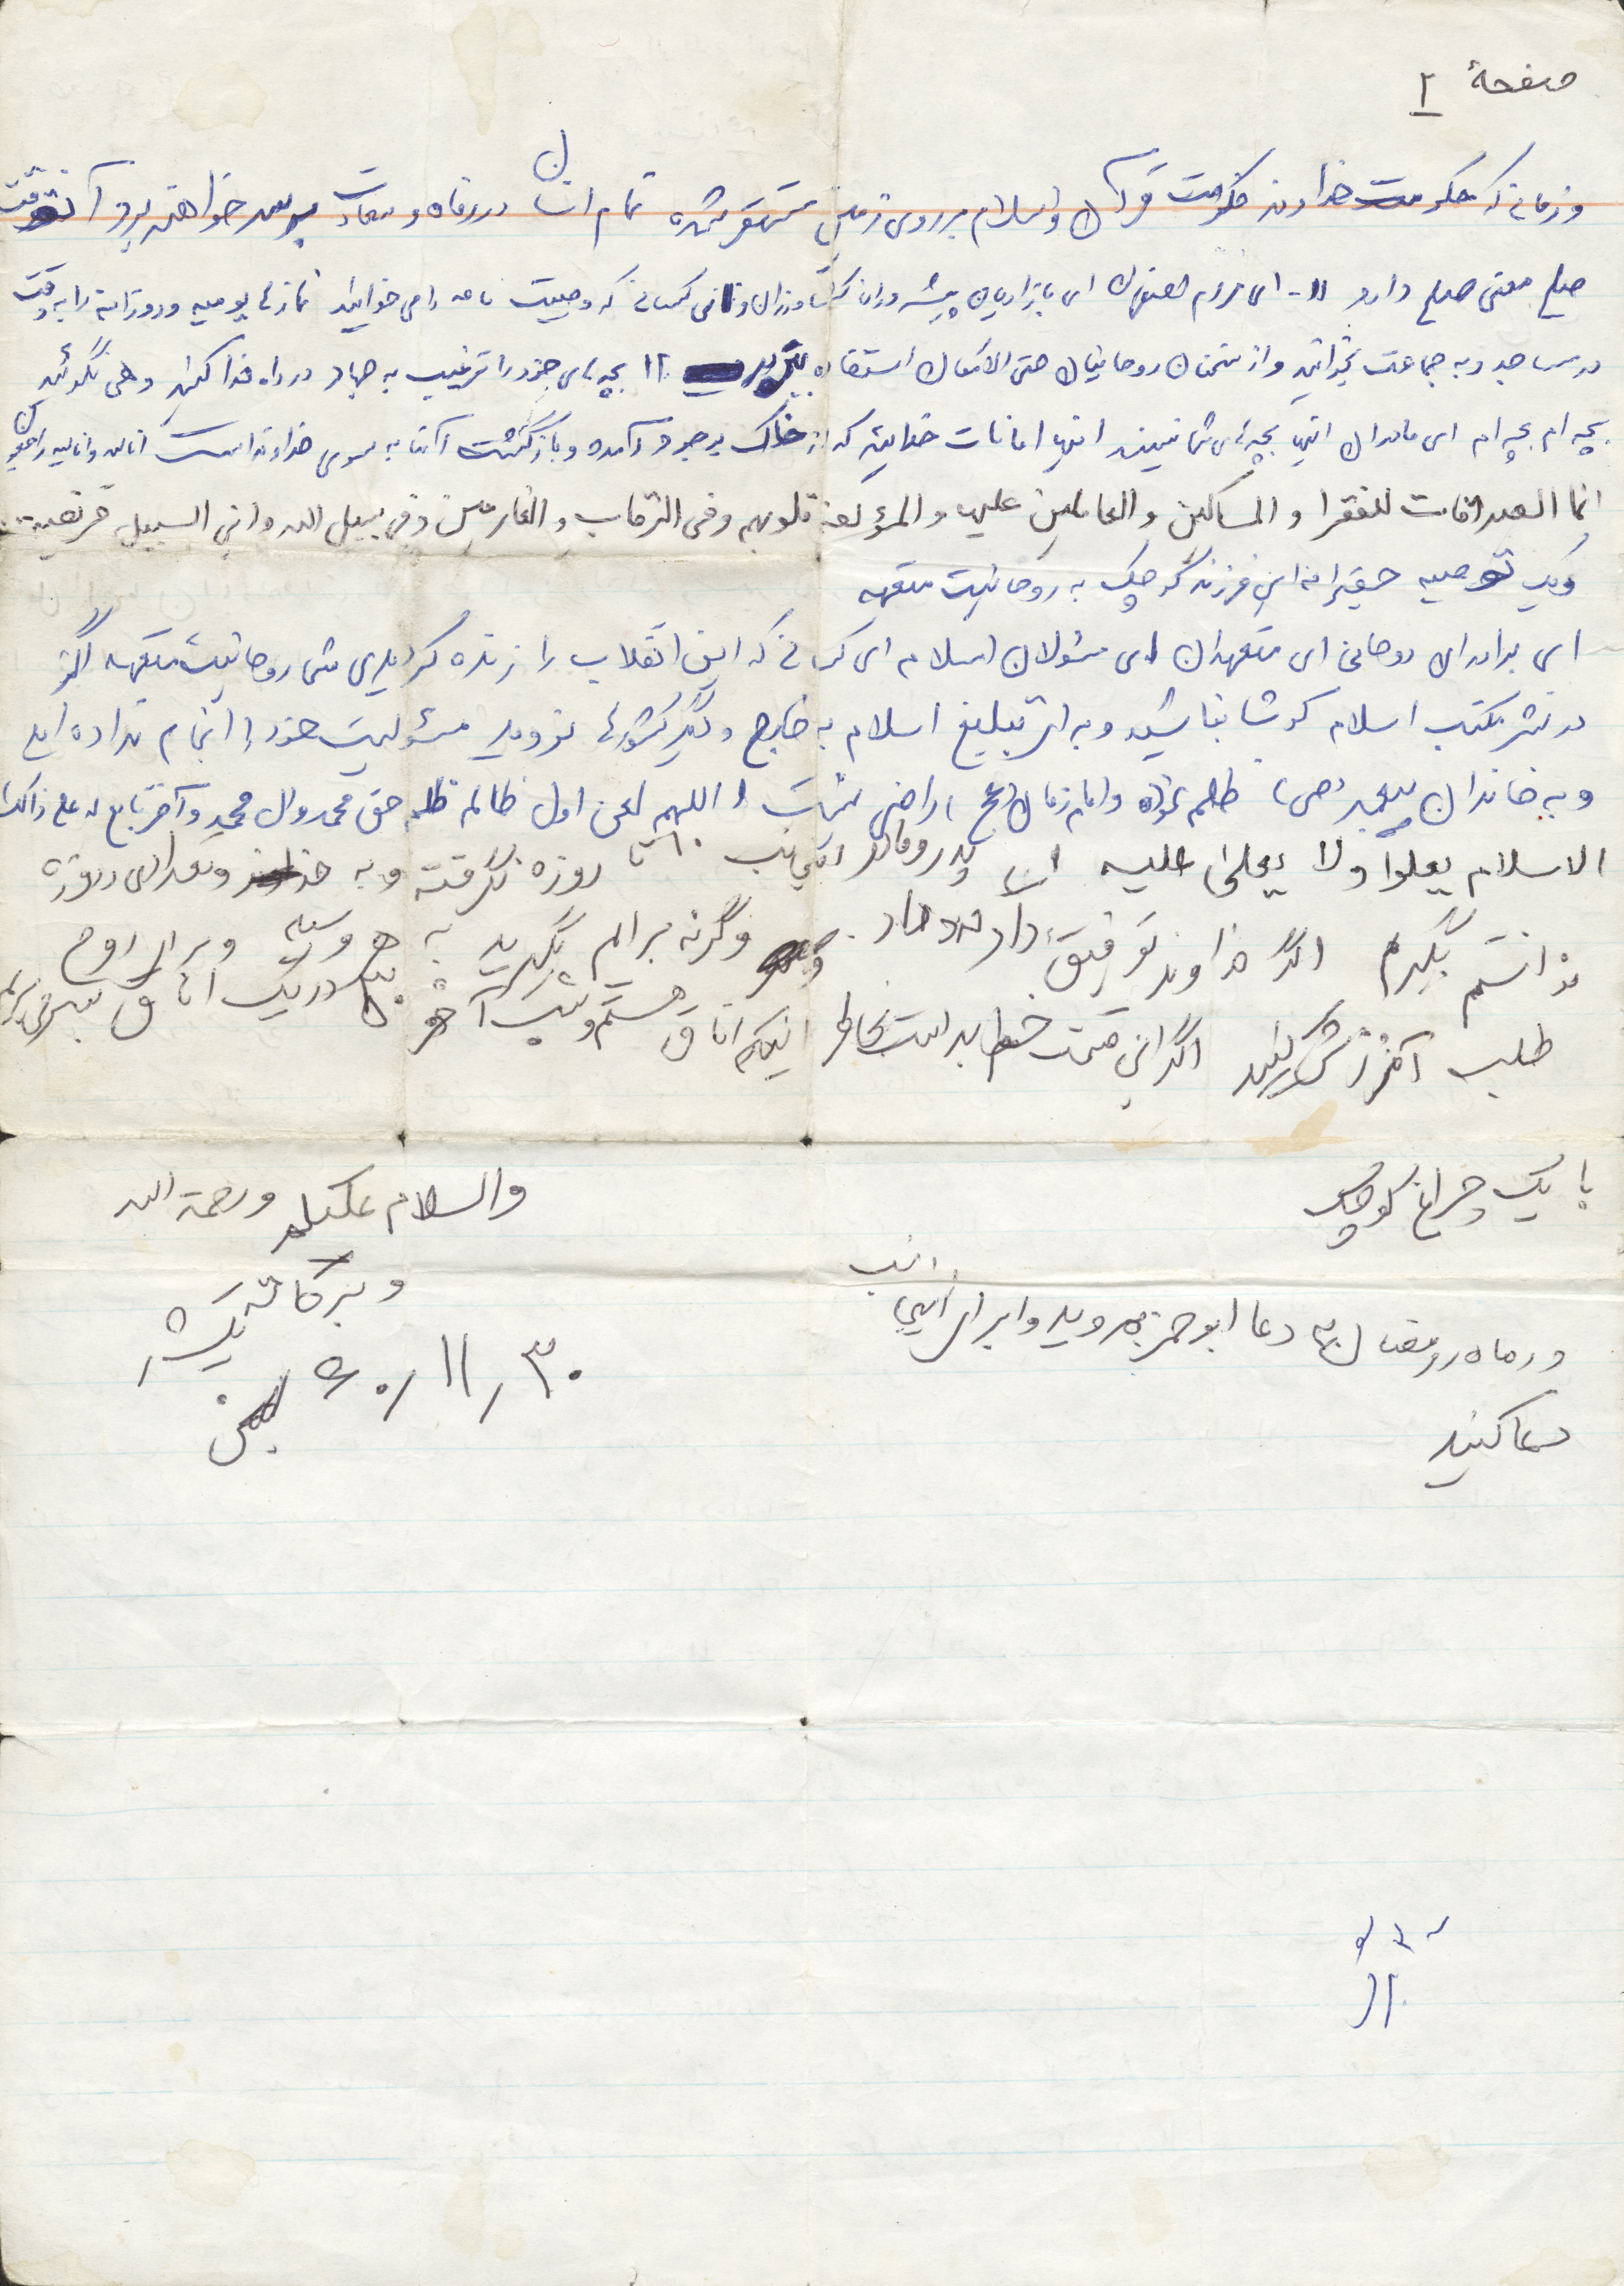 صفحهٔ ۲
و زمانی که حکومت خداوند حکومت قرآن و اسلام بر روی زمین مستقر شده تمام انسان در رفاه و سعادت بسر خواهند برد آنوقت
صلح معنی صلح دارد ۱۱- ای مردم اصفهان ای بازاریان پیشه وران کشاورزان و تمامی کسانی که وصیت نامه را می خوانید نمازهای یومیه و روزانه را به وقت
در مساجد و به جماعت بخوانید و از سخنان روحانیان حتی الامکان استفاده ببرید ۱۲ بچه های خود را ترغیب به جهاد در راه خدا کنید و هی نگوئید
بچه ام بچه ام ای مادران اینها بچه های شما نیستند اینها امانات خدایند که از خاک بوجود آمده و بازگشت آنها به سوی خداوند است انالله و انا الیه راجعون
انما الصدقات للفقرا و المساکین و العاملین علیها و المؤلفة قلوبهم و فی الرقاب و الغارمین و فی سبیل الله و ابن السبیل فریضة
و یک توصیه حقیرانه این فرزند کوچک به روحانیت متعهد
ای برادران روحانی ای متعهدان ای مسئولان اسلام ای کسانی که این انقلاب را زنده کردید ای شما روحانیت متعهد اگر
در نشر مکتب اسلام کوشا نباشید و برای تبلیغ اسلام به خارج و دیگر کشورها نروید مسئولیت خود را انجام نداده اید
و به خاندان پیغمبر (ص) ظلم شده و امام زمان (عج) راضی نیست اللهم لعن اول ظالم ظلم حق محمد وال محمد و آخر تابع له علی ذالک
الاسلام یعلوا ولا یعلی علیه ای پدر و مادر اینجانب ۶۰ تا روزه نگرفته و به خداوند و تعدادی روزه
نذاشتم بگیرم اگر خداوند توفیق داد خود وگرنه برایم بگیرید به هر وسیله و برای روح
طلب آمرزش کنید اگر این قسمت خط بد است بخاطر اینکه اتاق هستم و شب آخر در یک اتاق بسر می برم
با یک چراغ کوچک
والسلام علیکم ورحمة الله
و برکاته
در ماه رمضان به دعا ابوحمزه بروید و برای اینجانب
دعا کنید
۶۰/۱۱/۳۰